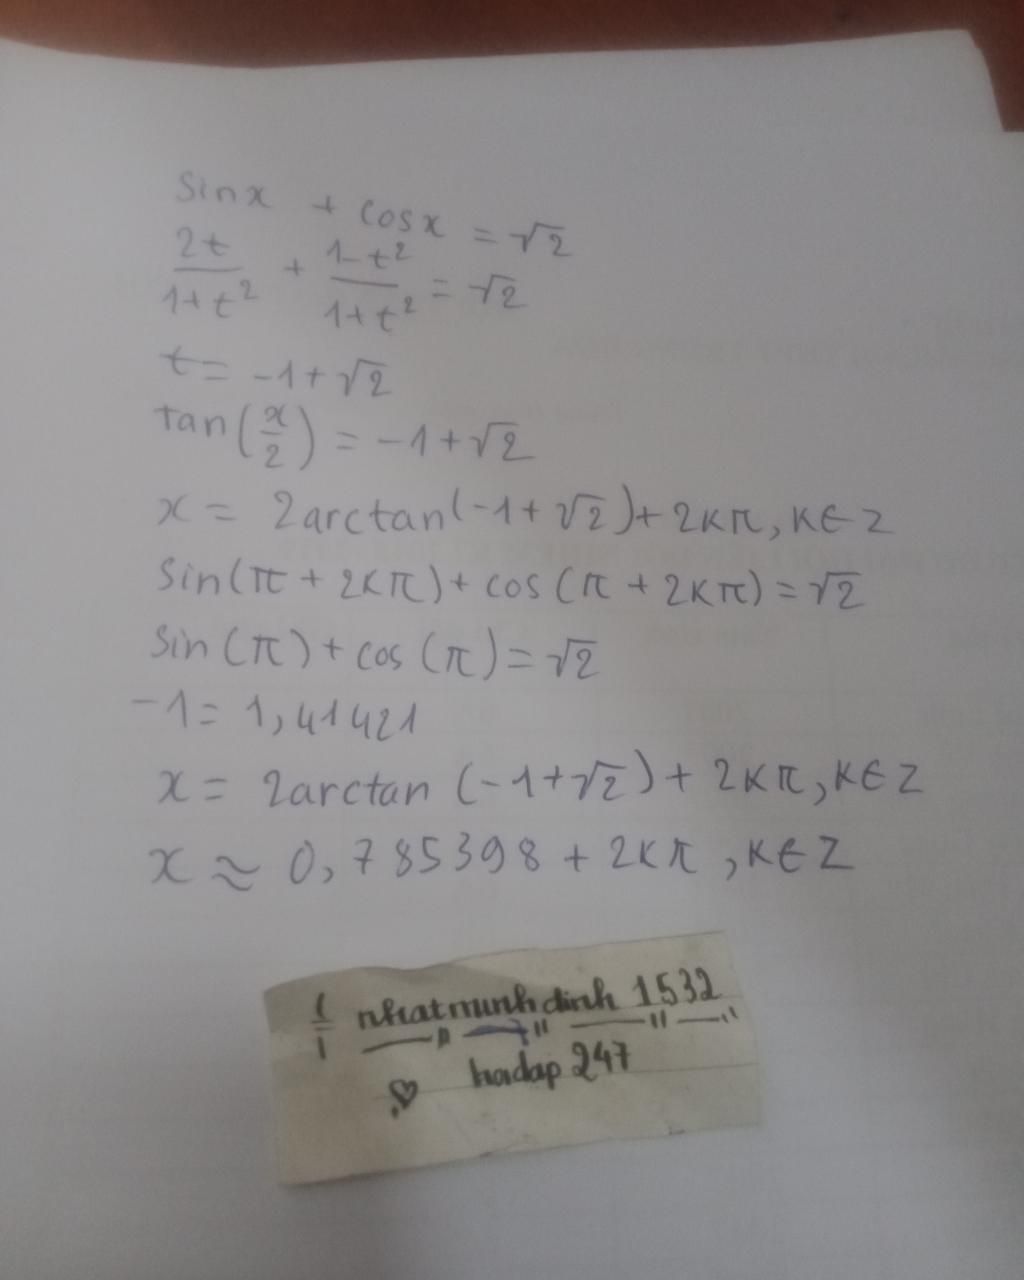 sinx + cosx = √2
2t/1+t² + 1-t²/1+t² = √2
t = -1+√2
tan(x/2) = -1+√2
x = 2arctan(-1+√2)+2kπ, k∈Z
sin(π + 2kπ) + cos(π + 2kπ) = √2
sin(π) + cos(π) = √2
-1 = 1,41421
x = 2arctan(-1+√2) + 2kπ, k∈Z
x ≈ 0,785398 + 2kπ, k∈Z
nhatminhdinh 1532
hoidap 247